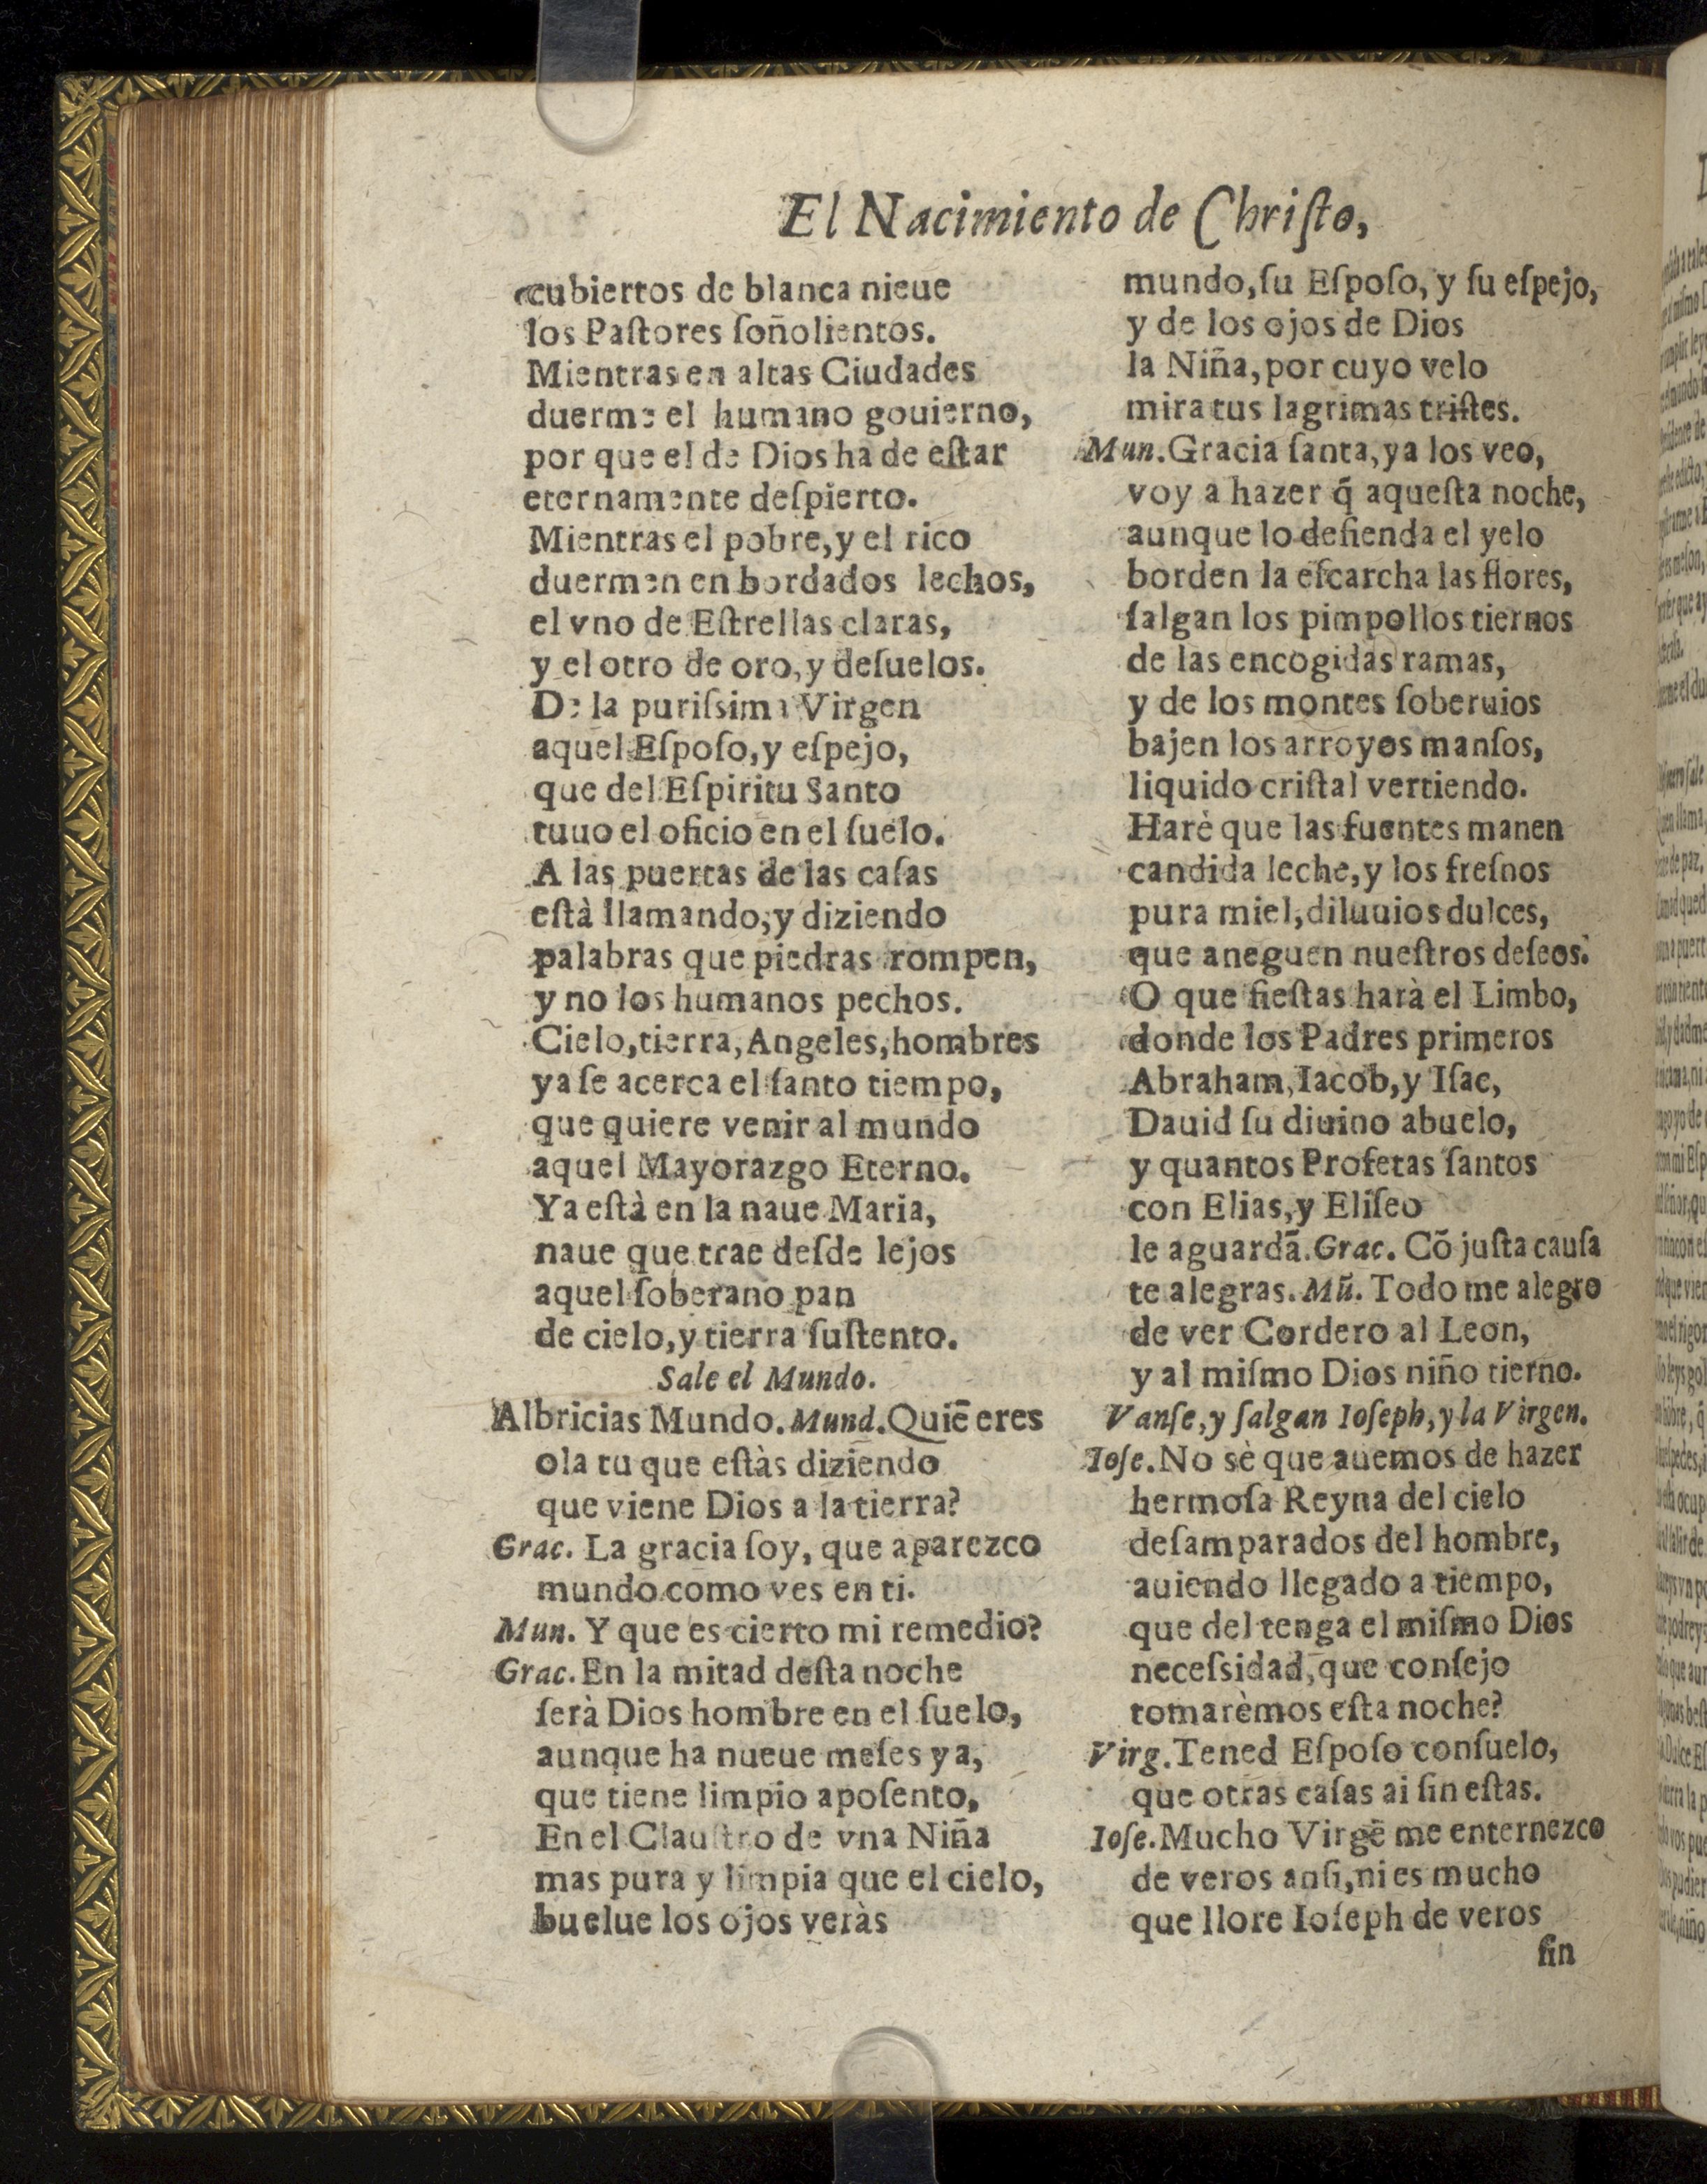 El Nacimiento de Chriſto,
cubiertos de blanca nieue
los Paſtores ſoñolientos.
Mientras en altas Ciudades
duerme el humano gouierno,
por que el de Dios ha de eſtar
eternamente deſpierto.
Mientras el pobre, y el rico
duermen en bordados lechos,
el vno de Eſtrellas claras,
y el otro de oro, y deſuelos.
De la puriſsima Virgen
aquel Eſpoſo, y eſpejo,
que del Eſpiritu Santo
tuuo el oficio en el ſuelo.
A las puertas de las caſas
eſtà llamando, y diziendo
palabras que piedras rompen,
y no los humanos pechos.
Cielo, tierra, Angeles, hombres
ya ſe acerca el ſanto tiempo,
que quiere venir al mundo
aquel Mayorazgo Eterno.
Ya eſtà en la naue Maria,
naue que trae deſde lejos
aquel ſoberano pan
de cielo, y tierra ſuſtento.
Sale el Mundo.
Albricias Mundo. Mund. Quiē eres
ola tu que eſtàs diziendo
que viene Dios a la tierra?
Grac. La gracia ſoy, que aparezco
mundo como ves en ti.
Mun. Y que es cierto mi remedio?
Grac. En la mitad deſta noche
ſerà Dios hombre en el ſuelo,
aunque ha nueue meſes ya,
que tiene limpio apoſento,
En el Clauſtro de vna Niña
mas pura y limpia que el cielo,
buelue los ojos veràs
mundo, ſu Eſpoſo, y ſu eſpejo,
y de los ojos de Dios
la Niña, por cuyo velo
mira tus lagrimas triſtes.
Mun. Gracia ſanta, ya los veo,
voy a hazer q̃ aqueſta noche,
aunque lo defienda el yelo
borden la eſcarcha las flores,
ſalgan los pimpollos tiernos
de las encogidas ramas,
y de los montes ſoberuios
bajen los arroyos manſos,
liquido criſtal vertiendo.
Harè que las fuentes manen
candida leche, y los freſnos
pura miel, diluuios dulces,
que aneguen nueſtros deſeos.
O que fieſtas harà el Limbo,
donde los Padres primeros
Abraham, Iacob, y Iſac,
Dauid ſu diuino abuelo,
y quantos Profetas ſantos
con Elias, y Eliſeo
le aguardã. Grac. Cõ juſta cauſa
te alegras. Mũ. Todo me alegro
de ver Cordero al Leon,
y al miſmo Dios niño tierno.
Vanſe, y ſalgan Ioſeph, y la Virgen.
Ioſe. No sè que auemos de hazer
hermoſa Reyna del cielo
deſamparados del hombre,
auiendo llegado a tiempo,
que del tenga el miſmo Dios
neceſsidad, que conſejo
tomarèmos eſta noche?
Virg. Tened Eſpoſo conſuelo,
que otras caſas ai ſin eſtas.
Ioſe. Mucho Virgē me enternezco
de veros anſi, ni es mucho
que llore Ioſeph de veros
ſin